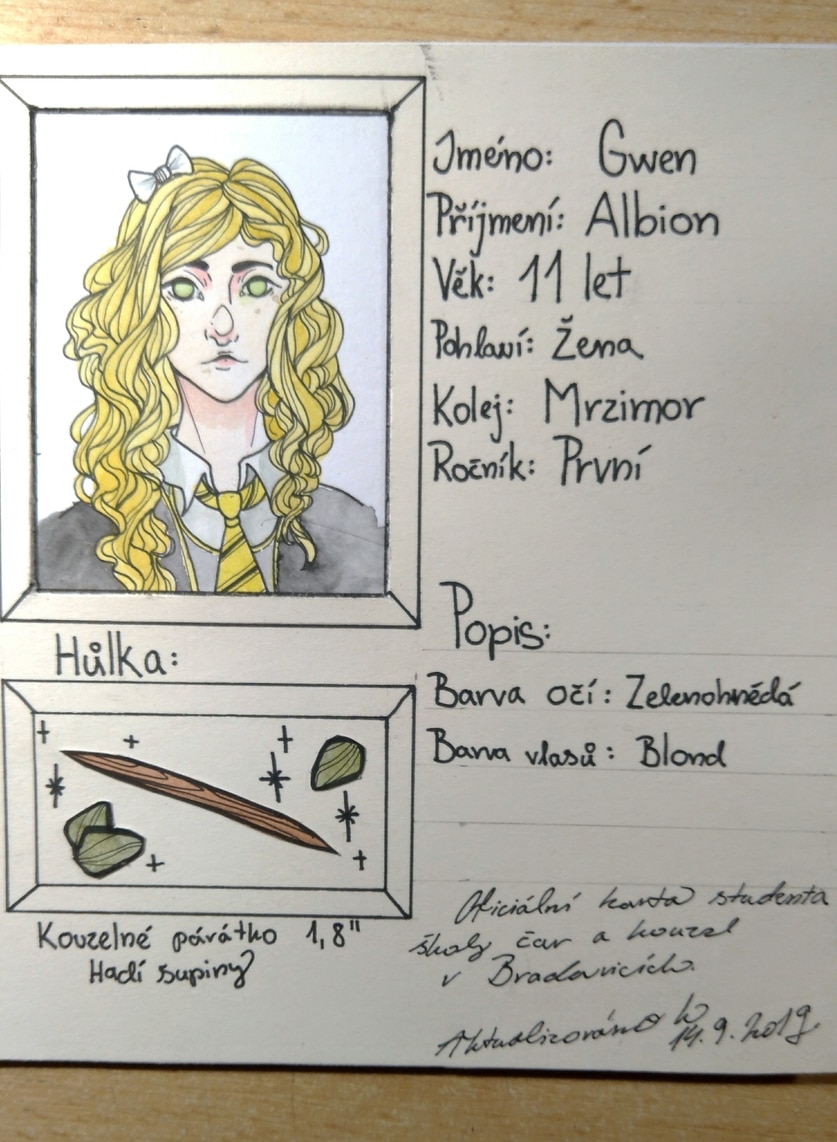 Jméno: Gwen
Příjmení: Albion
Věk: 11 let
Pohlaví: Žena
Kolej: Mrzimor
Ročník: První
Hůlka:
Kouzelné párátko 1,8"
Hadí šupiny
Popis:
Barva očí: Zelenohnědá
Barva vlasů: Blond
Oficiální karta studenta
školy čar a kouzel
v Bradavicích.
Aktualizováno k
14.9.2019